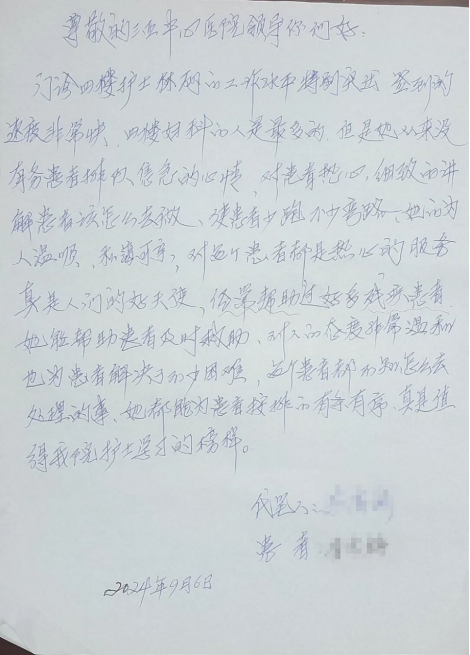 尊敬的三亚中心医院领导你们好：
门诊四楼护士林娴的工作水平特别突出 签到的
速度非常快，四楼妇科的人是最多的，但是她从来没
有务患者排队焦急的心情，对患者热心，细致的讲
解患者该怎么去做，使患者少跑不少弯路，她的为
人温顺、和蔼可亲，对每个患者都是热心的服务
真是人们的好天使，经常帮助过好多残疾患者
她能帮助患者及时救助、对人的态度非常温和
也为患者解决了不少困难，这个患者都不知怎么去
处理的事、她都能为患者安排的有条有序，真是值
得我院护士学习的榜样。
代笔人：
患者：
2024年9月6日